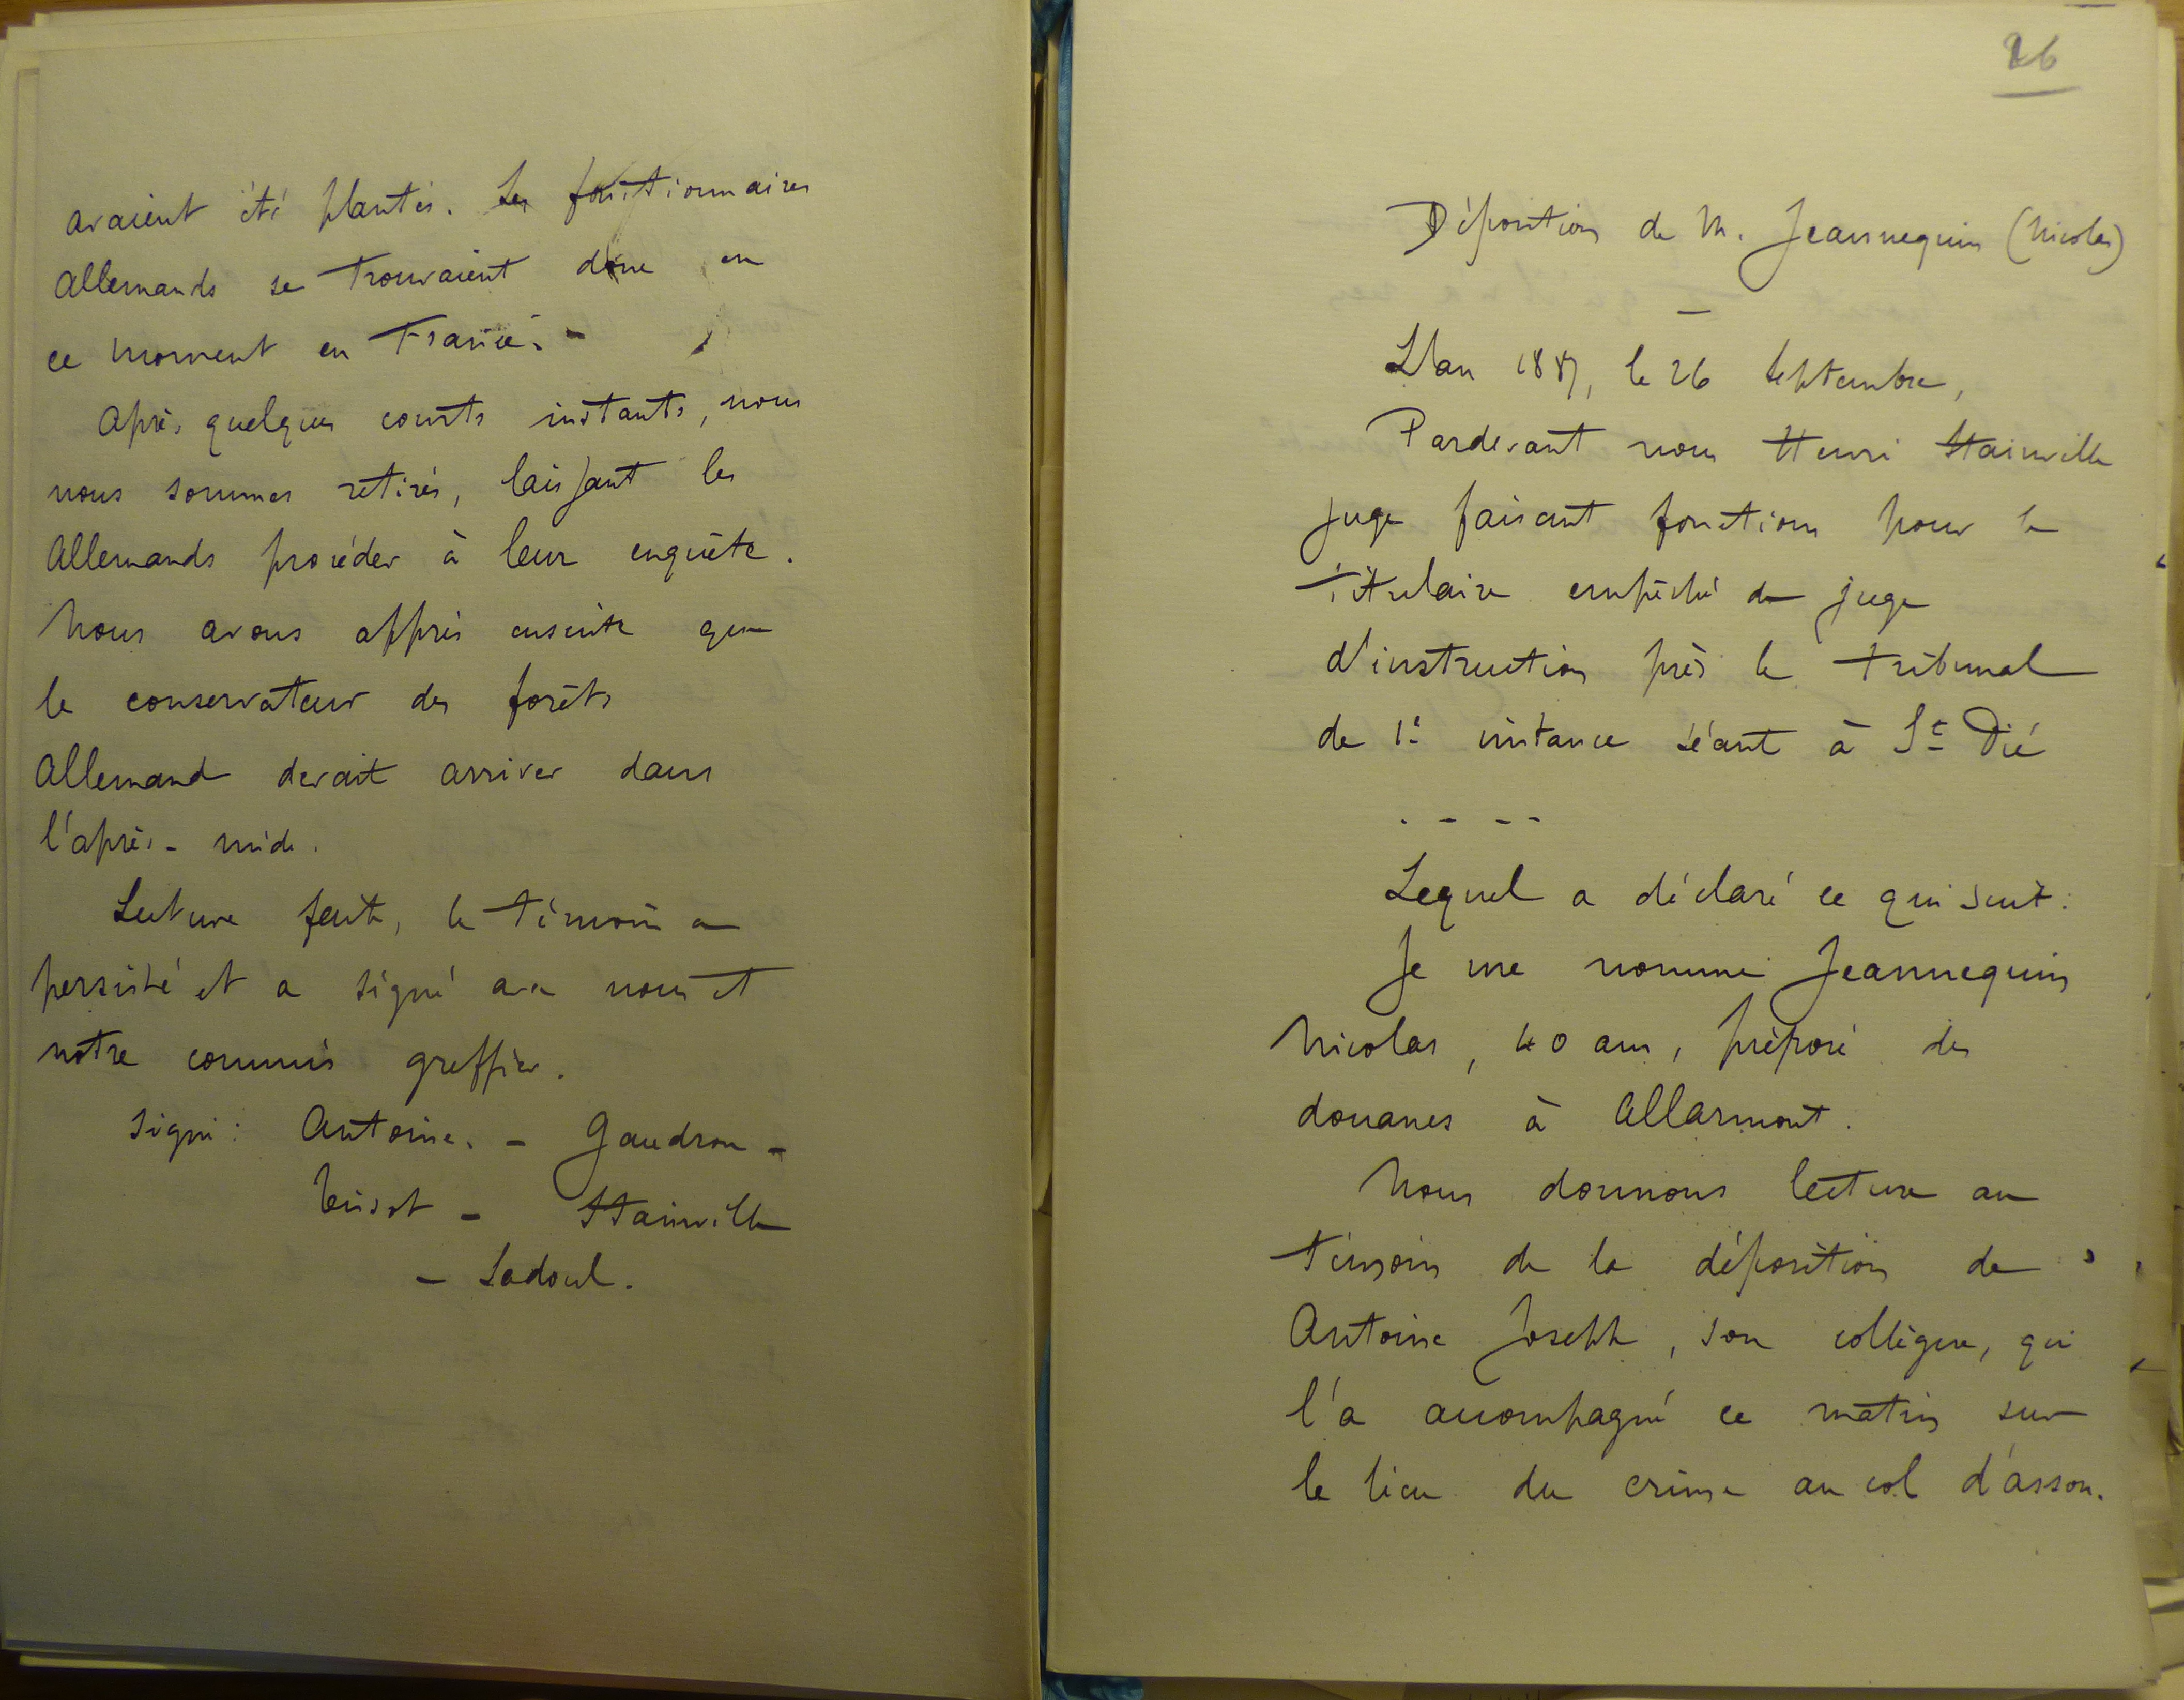 avaient été plantés. Les fonctionnaires
Allemands se trouvaient donc en
ce moment en France. -
Après quelques courts instants, nous
nous sommes retirés, laissant les
Allemands procéder à leur enquête.
Nous avons appris ensuite que
le conservateur des forêts
Allemand devait arriver dans
l'après-midi.
Lecture faite, le témoin a
persisté et a signé avec nous et
notre commis greffier.
Signé : Antoine. - Gaudron -
- Stainville
- Sadoul.
26
Déposition de M. Jeannequin (Nicolas)
L'an 1887, le 26 Septembre,
Pardevant nous Henri Stainville
juge faisant fonctions pour le
titulaire empêché de juge
d'instruction près le tribunal
de 1e instance séant à St Dié
. - - -
Lequel a déclaré ce qui suit :
Je me nomme Jeannequin
Nicolas, 40 ans, préposé des
douanes à Allarmont.
Nous donnons lecture au
témoin de la déposition de
Antoine Joseph, son collègue, qui
l'a accompagné ce matin sur
le lieu du crime au col d'asson.